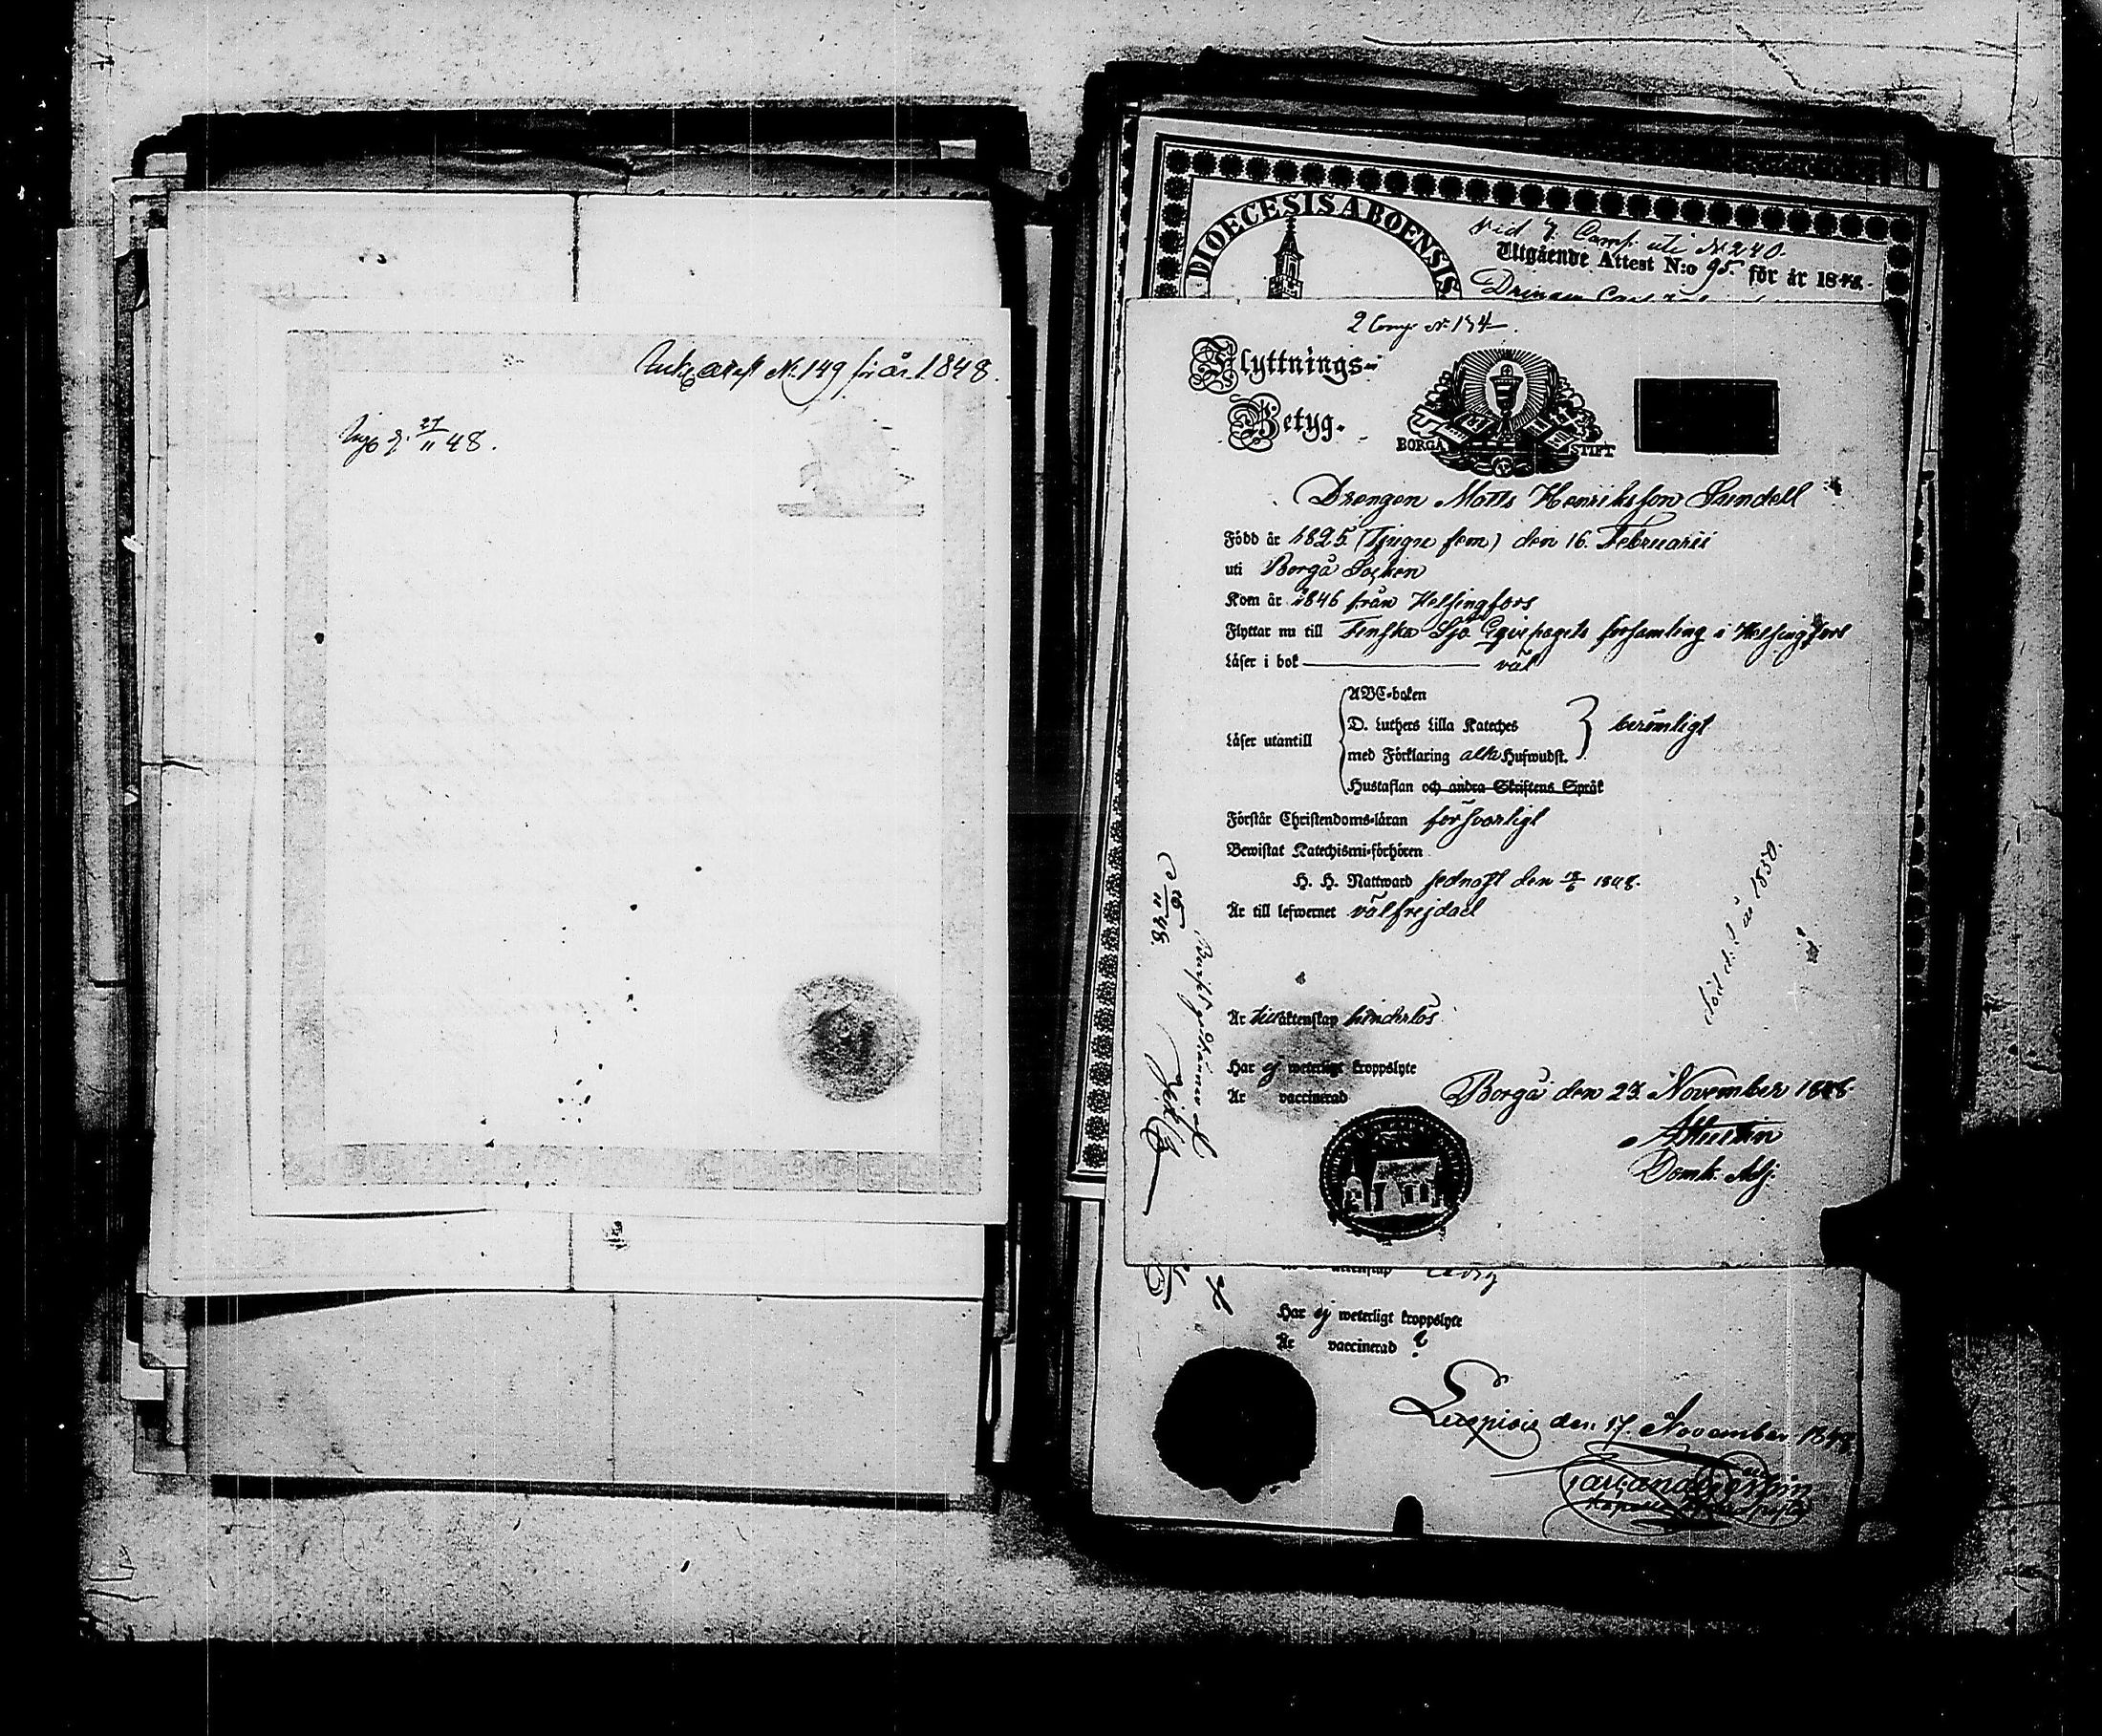 attest No 149 för år 1848.
27/11 48.
DIOECESIS ABOENSIS
Vid 7. Comp. uti No 240.
Utgående Attest N:o 95. för år 1848.
Drengen
2 Comp. No 134.
Flyttnings-
Betyg.
BORGÅ STIFT
Drengen Matts Henriksson Sundell
Född år 1825 (Tjugu fem) den 16. Februarii
uti Borgå Socken
Kom år 1846 från Helsingfors
Flyttar nu till Finska Sjö Equipagets församling i Helsingfors
Läser i bok väl
Läser utantill
ABC-boken
D. Luthers Lilla Kateches
med Förklaring alla Hufwudst.
Hustaflan och andra Skriftens Språk
berömligt
Förstår Christendoms-läran försvarligt
Bewistat Katechismi-förhören
H. H. Nattward sednast den 18/6 1848.
Är till lefwernet välfrejdad
Är till äktenskap hinderlös
Har ej weterligt kroppslyte
Är vaccinerad
Borgå den 23. November 1848.
Domk. Adj.
död d. 2 år 1850.
48.
äktenskap ledig
Har ej weterligt kroppslyte
Är vaccinerad ?
den 17. November 1848